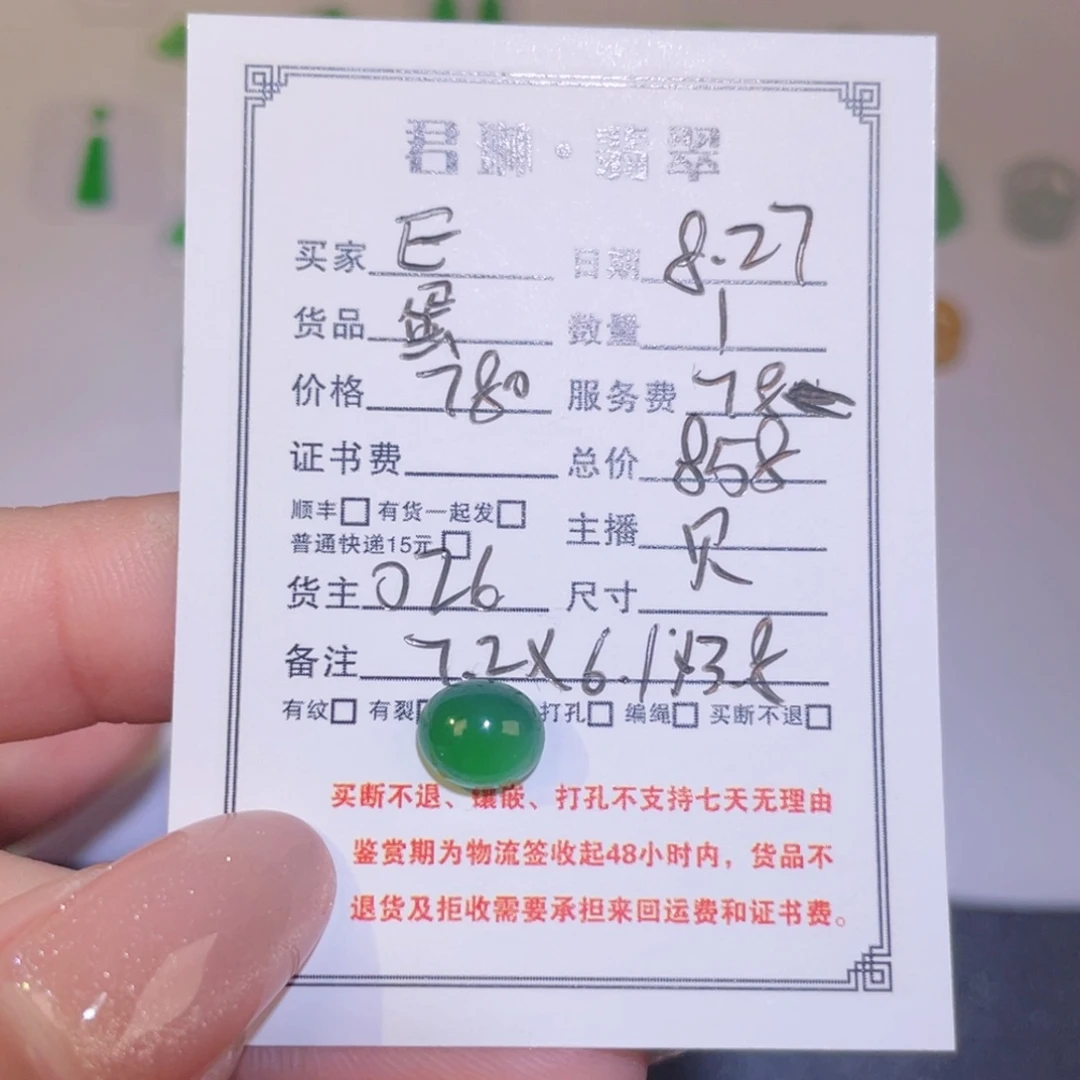 君 · 翡翠
买家 E 日期 8.27
货品 蛋 数量 1
价格 780 服务费 78
证书费 总价 858
顺丰□ 有货一起发□
普通快递15元□ 主播 贝
货主 026 尺寸
备注 7.2×6.1×3.8
有纹□ 有裂 打孔□ 编绳□ 买断不退□
买断不退、镶嵌、打孔不支持七天无理由
鉴赏期为物流签收起48小时内，货品不
退货及拒收需要承担来回运费和证书费。